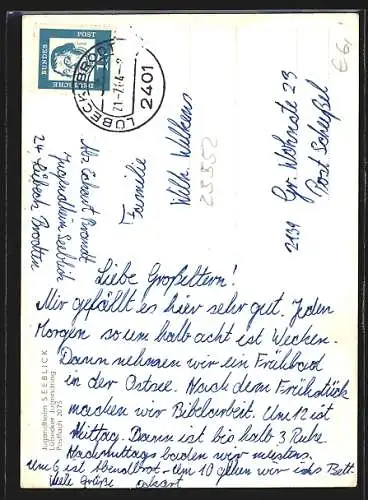 DEUTSCHE
BUNDES
POST
LÜBECK-BRODTEN
21-7.64-9
2401
€6,-
Abs. Eckart Brandt
Jugendheim Seeblick
24 Lübeck, Brodten
Familie
Wilh. Wilkens
25552
2139
Gr. Wohnste 23
Post Scheeßel
Liebe Großeltern!
Mir gefällt es hier sehr gut. Jeden
Morgen so um halb acht ist Wecken.
Dann nehmen wir ein Frühbad
in der Ostsee. Nach dem Frühstück
machen wir Bibelarbeit. Um 12 ist
Mittag. Dann ist bis halb 3 Ruhe
Nachmittags baden wir meistens.
Um 6 ist Abendbrot - Um 10 gehen wir ins Bett.
Viele Grüße Eckart
Jugendheim SEEBLICK
Lübecker Jugendring
Postfach 2075